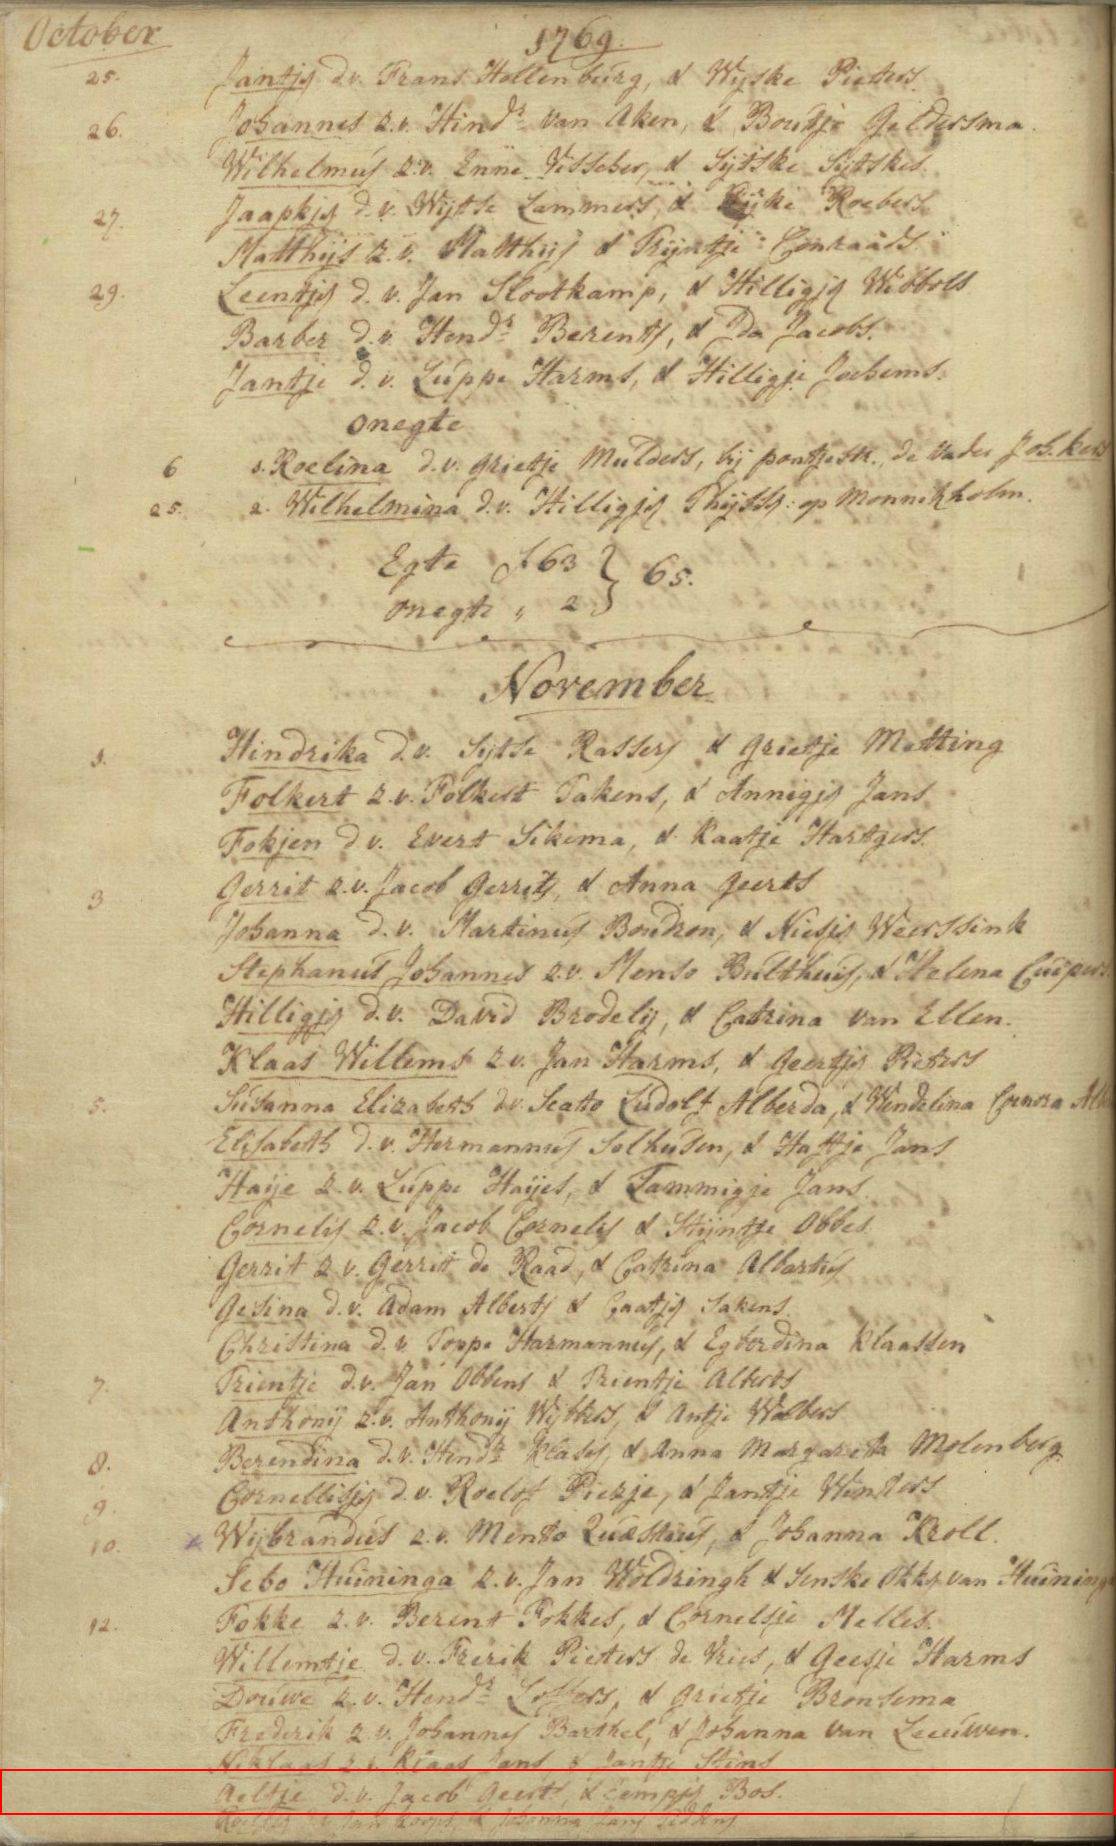 October 1769.
25. Jantjs d.v. Frans Hollenburg, & Wijske Pieters.
26. Johannes z.v. Hindr. van Aken, & Boutje Geldersma.
Wilhelmus z.v. Enne Visscher, & Sijtske Sijtskes.
27. Jaapkjs d.v. Wijtse Lammers, & Roebers
Matthijs z.v. Matthijs & Trijntje Conraads.
29. Leentjs d.v. Jan Slootkamp, & Hilligjs Wibbols
Barber d.v. Hendr. Berents, & Ida Jacobs.
Jantje d.v. Luppe Harms, & Hilligje Jochems.
onegte
6 1. Roelina d.v. Grietje Mulders, bij de Vader Joh.
25. 2. Wilhelmina d.v. Hilligjs Thijssz: op Monnikholm.
Egte 63 } 65.
onegte " 2
November
1. Hindrika d.v. Sijtse Rassers & Grietje Matting
Folkert z.v. Folkert Takens, & Annigjs Jans
Fokjen d v. Evert Sikema, & Kaatje Hartgers.
3 Gerrit z.v. Jacob Gerrits, & Anna Geerts
Johanna d.v. Martinus Boudron, & Niesjs Weerssink
Stephanus Johannes z.v. Menso Bulthuis, & Helena Cuipers
Hilligjs d.v. David Brodelis, & Catrina van Ellen.
Klaas Willems z.v. Jan Harms, & Geertjs Pieters
5. Susanna Elizabeth d.v. Scato Ludolf Alberda, & Wendelina Cornera
Elisabeth d.v. Hermannus Solhusen, & Jans
Haije z.v. Luppe Haijes, & Tammigje Jans.
Cornelis z.v. Jacob Cornelis & Stijntje Obbes.
Gerrit z.v. Gerrit de Raad, & Catrina Albartus
Gesina d.v. Adam Alberts & Caatjs Sakens.
Christina d.v. Poppe Harmannus, & Egberdina Klaassen
7. Trientje d.v. Jan Obbens & Trientje Alberts
Anthonij z.v. Anthonij Wijbkes, & Antje Wolbers
8. Berendina d.v. Hendr. Klases, & Anna Margareta Molenberg
9. Cornellisjs d.v. Roelof Pierje, & Jantje Winters
10. Wijbrandus z.v. Mento & Johanna Kroll.
Sebo Huininga z.v. Jan Woldringh & Senske Okkes van Huininga
12. Fokke z.v. Berent Fokkes, & Cornelsje Melles.
Willemtje d.v. Frerik Pieters de Vries, & Geesje Harms
Douwe z.v. Hendr. Loffers, & Grietje Bronsema
Frederik z.v. Johannes Barthel, & Johanna van Leeuwen.
Niklaas z.v. Klaas Jans, & Jantje Stins
Aeltje d.v. Jacob Geerts, & Bos.